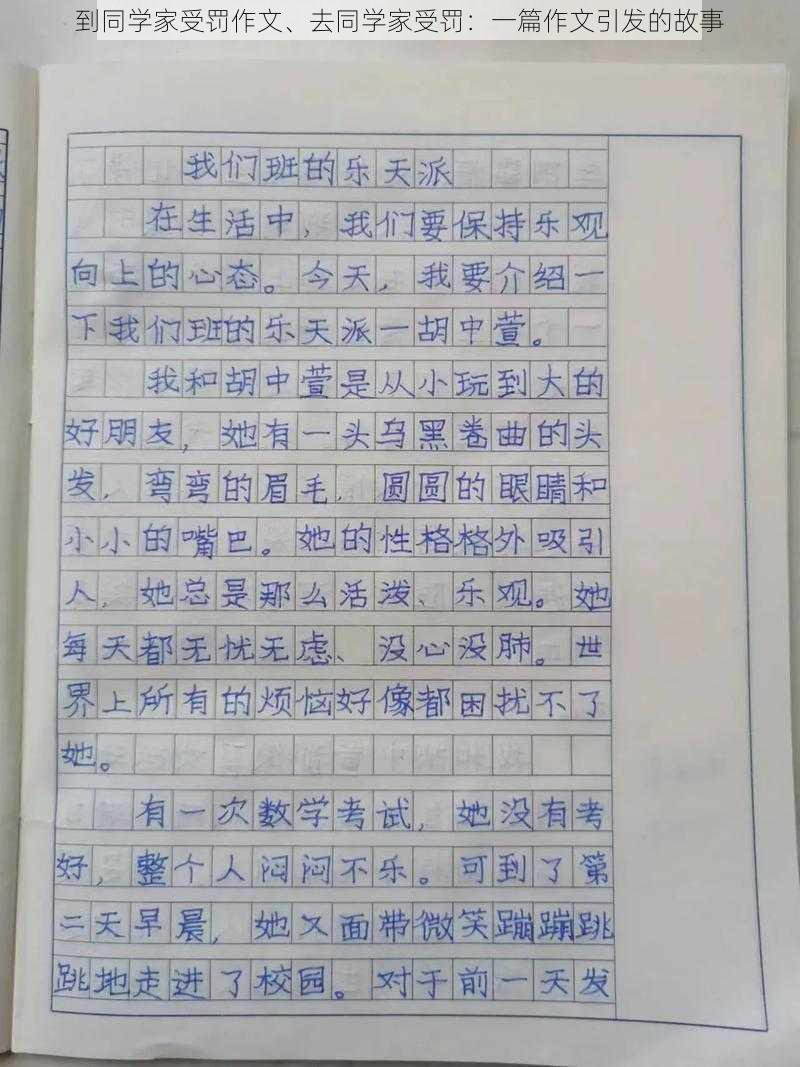 到同学家受罚作文、去同学家受罚：一篇作文引发的故事
我们班的乐天派
在生活中，我们要保持乐观
向上的心态。今天，我要介绍一
下我们班的乐天派一胡中萱。
我和胡中萱是从小玩到大的
好朋友，她有一头乌黑卷曲的头
发，弯弯的眉毛，圆圆的眼睛和
小小的嘴巴。她的性格格外吸引
人，她总是那么活泼、乐观。她
每天都无忧无虑、没心没肺。世
界上所有的烦恼好像都困扰不了
她。
有一次数学考试，她没有考
好，整个人闷闷不乐。可到了第
二天早晨，她又面带微笑蹦蹦跳
跳地走进了校园。对于前一天发